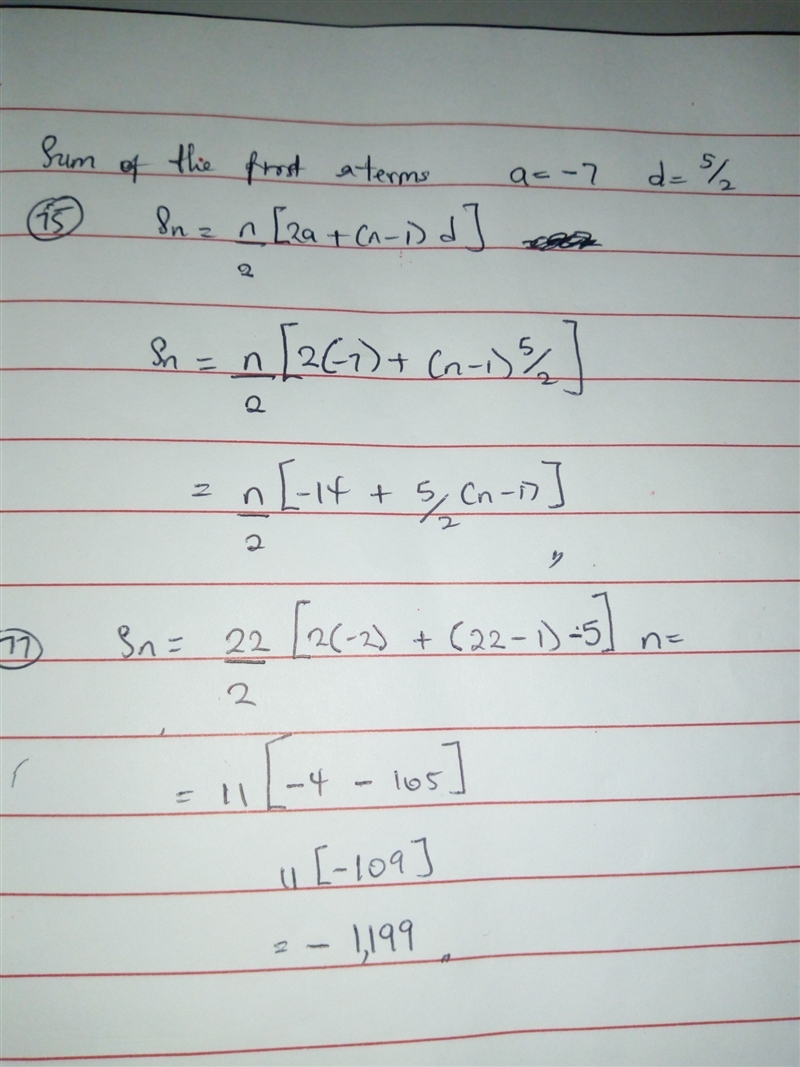 Sum of the first n terms a = -7 d = 5/2
(15) Sn = n/2 [2a + (n-1) d]
Sn = n/2 [2(-7) + (n-1) 5/2]
= n/2 [-14 + 5/2 (n-1)]
Sn = 22/2 [2(-2) + (22-1) -5] n=
= 11 [-4 - 105]
11 [-109]
= - 1,199